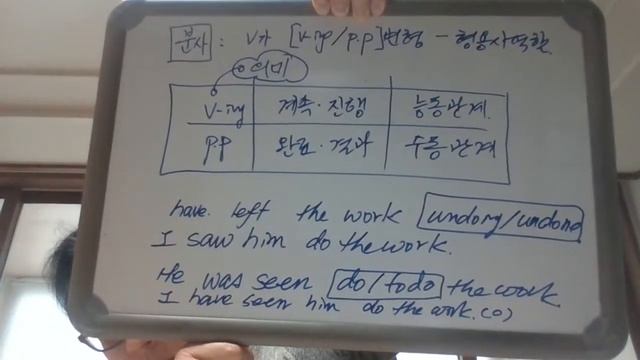 분사 : V가 [V-ing/p.p]변형 - 형용사역할
의미
V-ing 계속·진행 능동관계.
p.p 완료·결과 수동관계
have left the work undoing/undone
I saw him do the work.
He was seen do/to do the work
I have seen him do the work.(o)